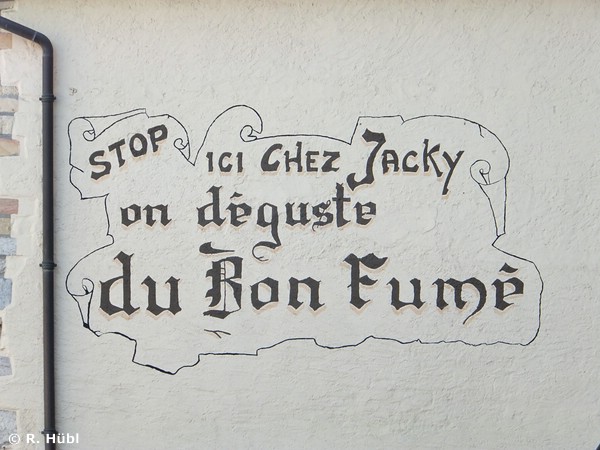 STOP ICI CHEZ JACKY
on déguste
du Bon Fumé
© R. Hübl